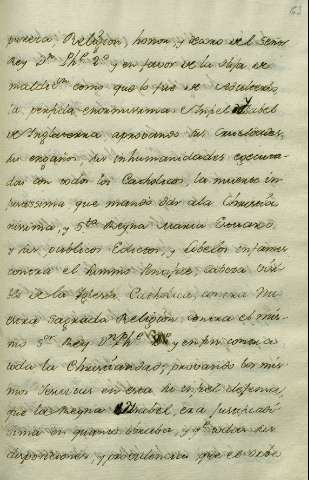 63
Religion, honor, y del Señor
Rey Dn. Phe. 2º y en favor de la hija de
maldicon como que lo fue de
la perfida enormissima e Infiel Isabel
de Inglaterra aprobando sus Crueldades,
sus engaños, sus inhumanidades executa-
das con todos los Catholicos, la muerte in-
justissima que mando dar ala Christia-
nissima, y Sta Reyna Maria
y sus publicos Edictos, y Libelos infames
contra el Summo Pontifice, cabeza visi-
ble de la Iglesia Catholica, contra Nu-
estra Sagrada Religion, contra el mis-
mo Sor. Rey Dn. Phe. y en fin contra
toda la Christiandad; probando los mis-
mos Jesuitas en esta su infiel defensa,
que la Reyna Isabel, era justificadi-
sima en quanto obraba, y qe. todas sus
disposiciones, y providencias que se